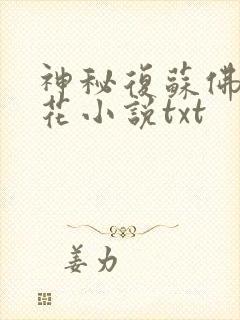 神秘復蘇佛
花小説txt
姜力